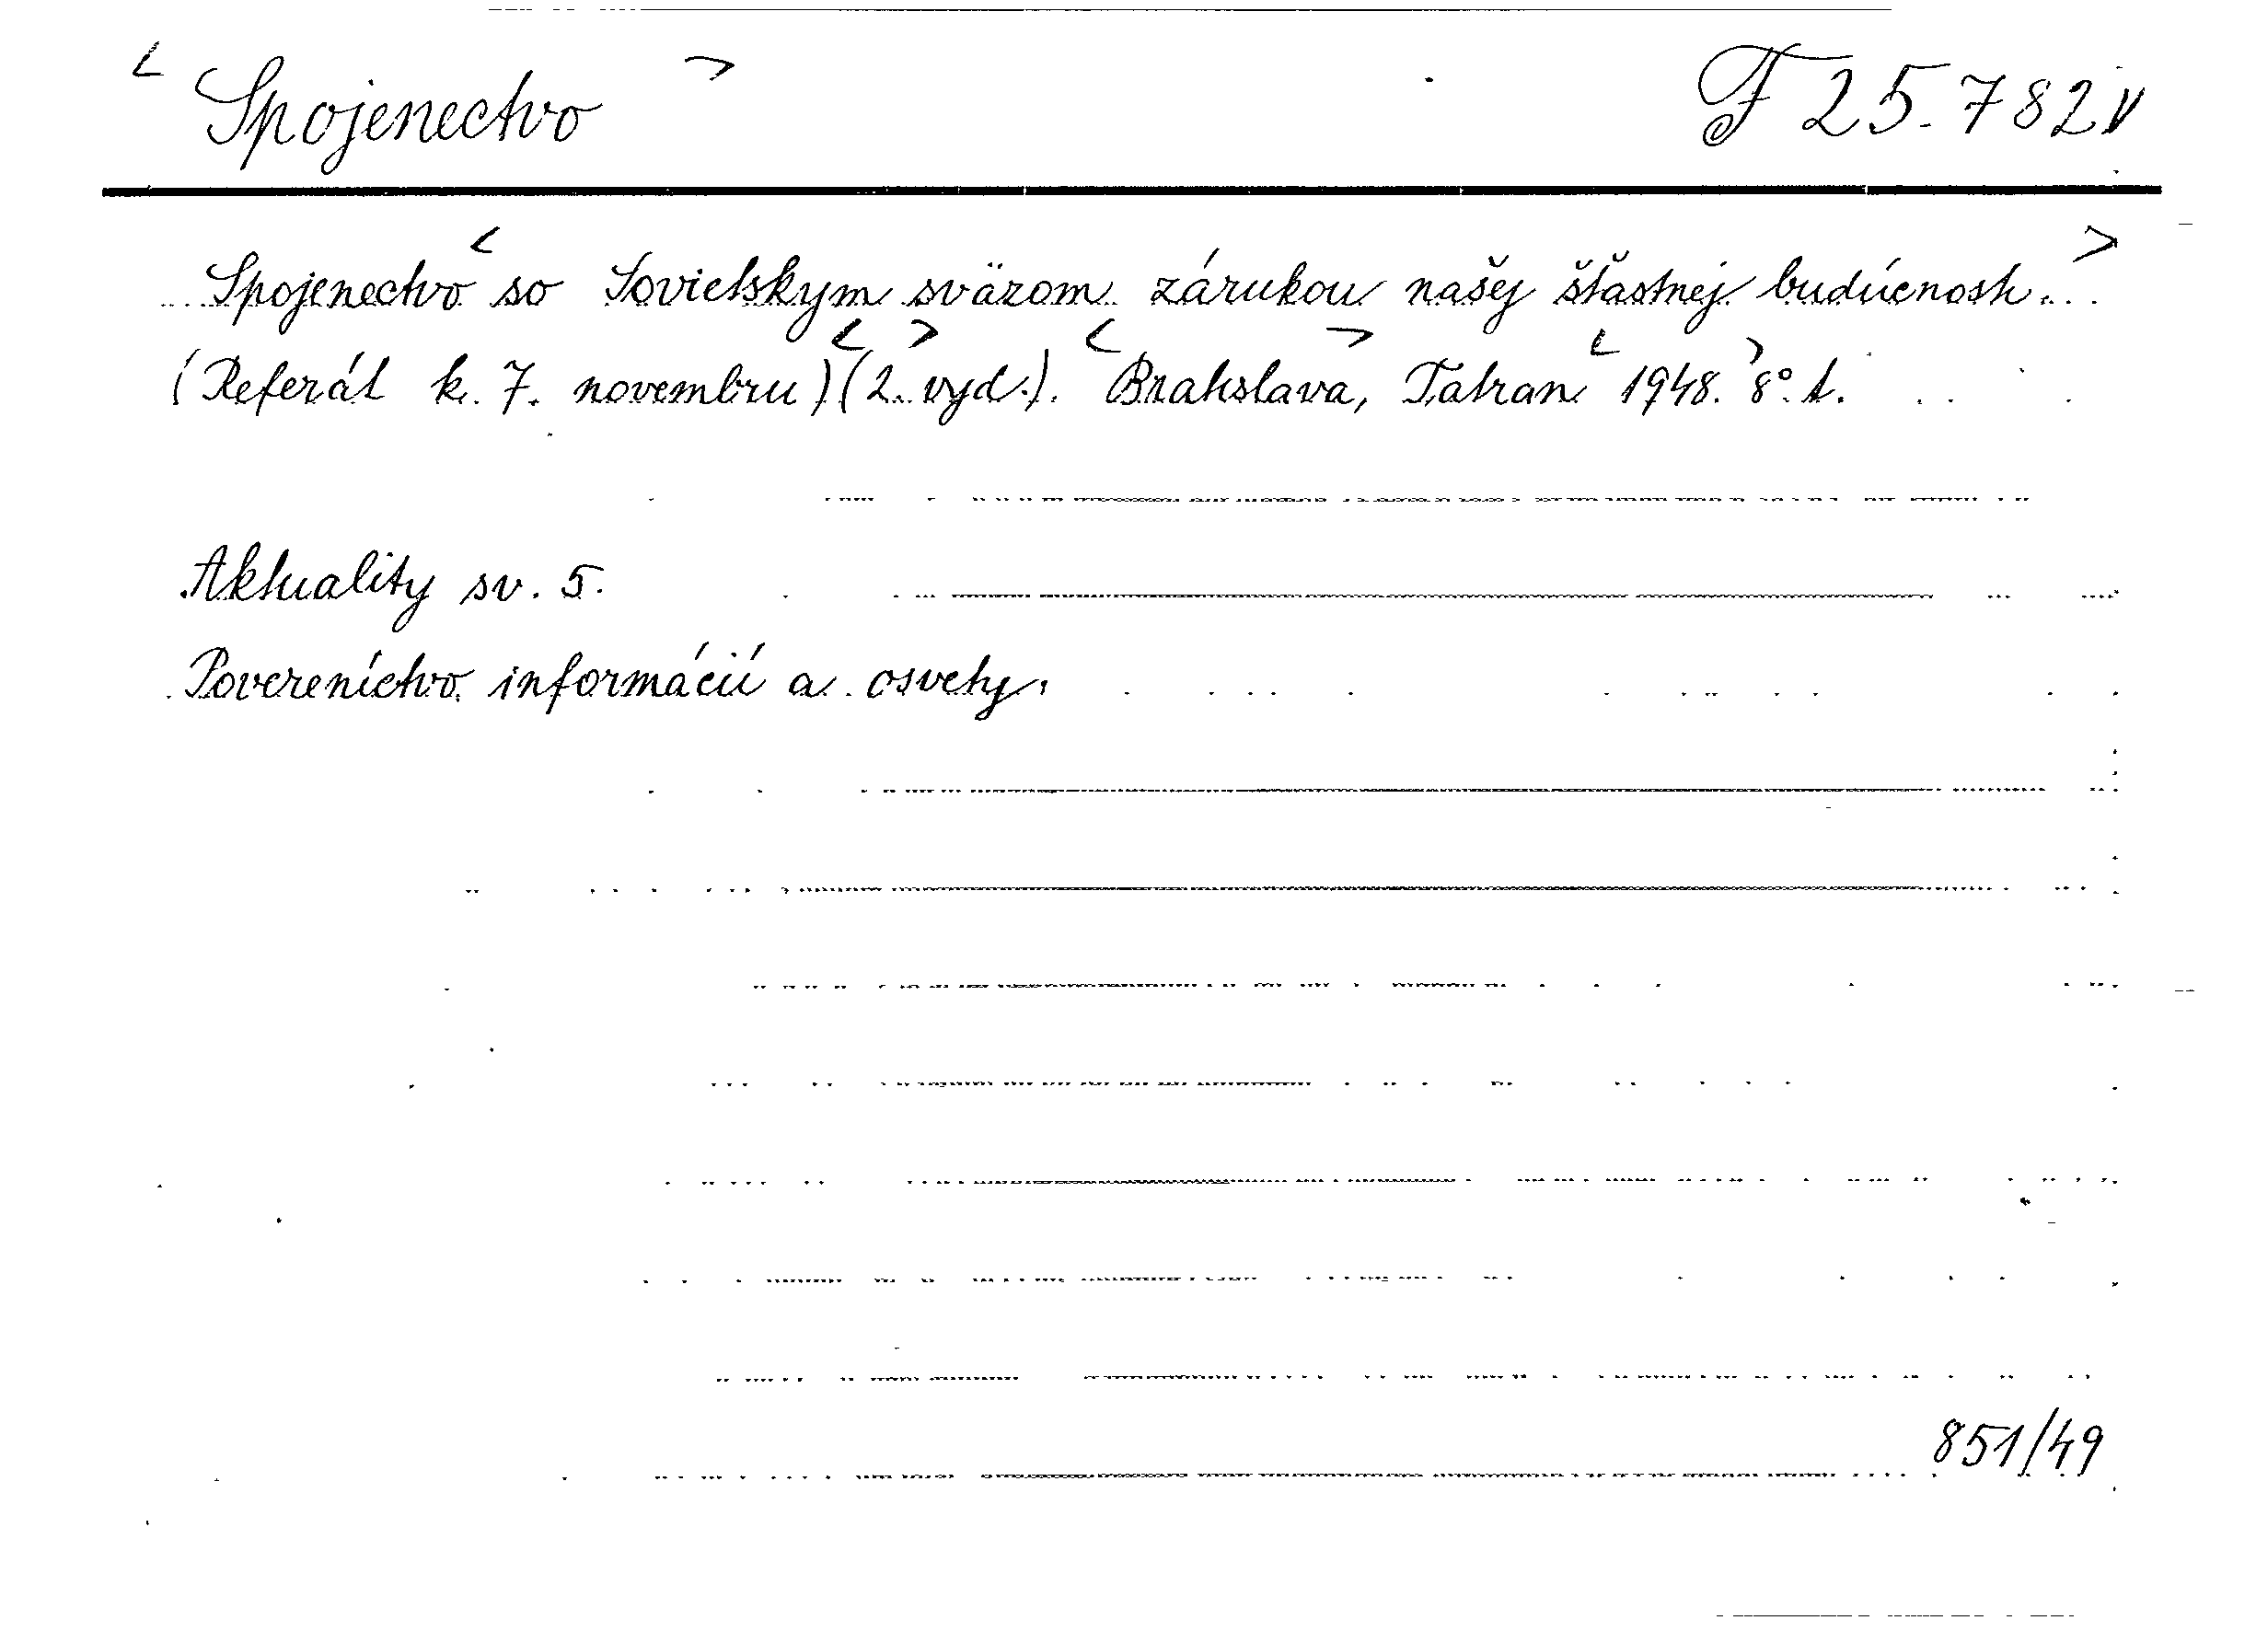 < Spojenectvo > F 25.782 V
Spojenectvo < so Sovietskym sväzom zárukou našej šťastnej budúcnosti. >
(Referát k 7. novembru) < (2. > vyd.). < Bratislava, > Tatran < 1948. > 8° t.
Aktuality sv. 5.
Povereníctvo informácií a osvety.
851/49